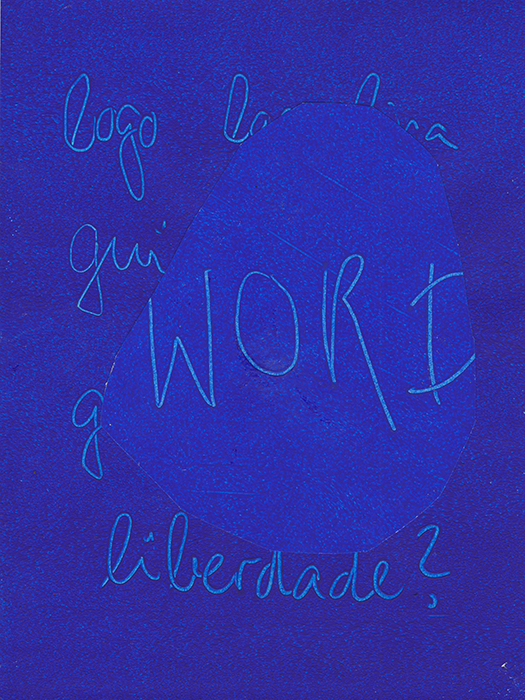 logo
gui
WORI
g
liberdade?